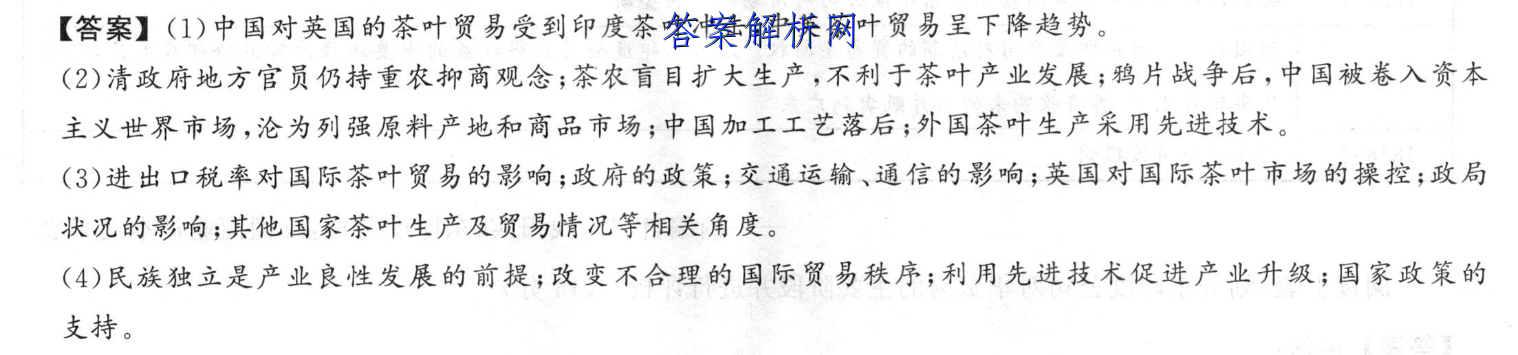 【答案】(1)中国对英国的茶叶贸易受到印度茶叶冲击,中英茶叶贸易呈下降趋势。
答案解析网
(2)清政府地方官员仍持重农抑商观念;茶农盲目扩大生产,不利于茶叶产业发展;鸦片战争后,中国被卷入资本
主义世界市场,沦为列强原料产地和商品市场;中国加工工艺落后;外国茶叶生产采用先进技术。
(3)进出口税率对国际茶叶贸易的影响;政府的政策;交通运输、通信的影响;英国对国际茶叶市场的操控;政局
状况的影响;其他国家茶叶生产及贸易情况等相关角度。
(4)民族独立是产业良性发展的前提;改变不合理的国际贸易秩序;利用先进技术促进产业升级;国家政策的
支持。